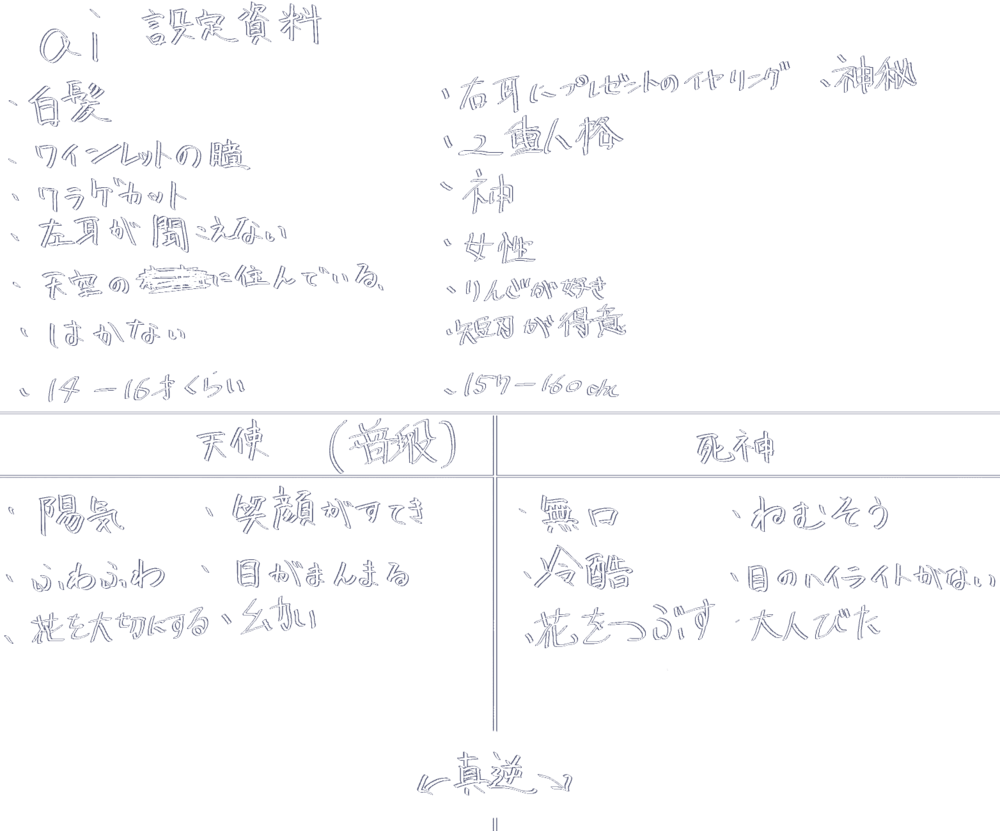 ai 設定資料
・白髪
・ワインレットの瞳
・クラゲカット
・左耳が聞こえない
・天空の に住んでいる。
・はかない
・14－16才くらい
・右耳にプレゼントのイヤリング ・神秘
・2重人格
・神
・女性
・りんごが好き
・短刀が得意
・157－160cm
天使 (普段)
・陽気 ・笑顔がすてき
・ふわふわ ・目がまんまる
・花を大切にする ・幼い
死神
・無口 ・ねむそう
・冷酷 ・目のハイライトがない
・花をつぶす ・大人びた
←真逆→